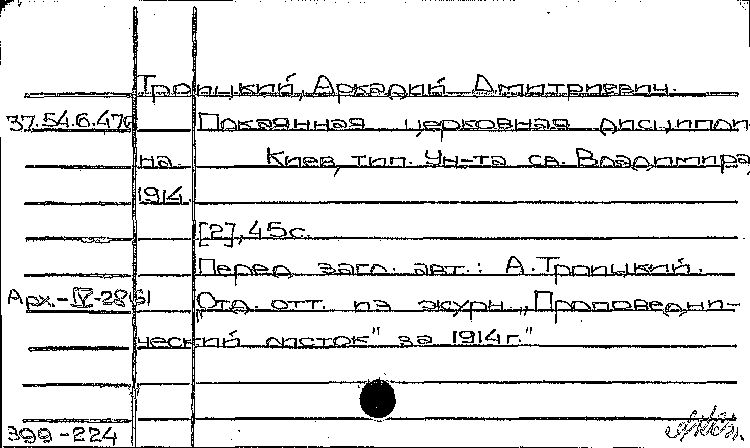 Троицкий, Аркадий Дмитриевич.
37.54.6.476 Покаянная церковная дисципли
на. Киев, тип. Ун-та св. Владимира,
1914.
[2], 45с.
Перед загл. авт.: А. Троицкий.
Арх.-IV-286) „Отд. отт. из журн. „Проповедни-
ческий листок" за 1914г."
399-224